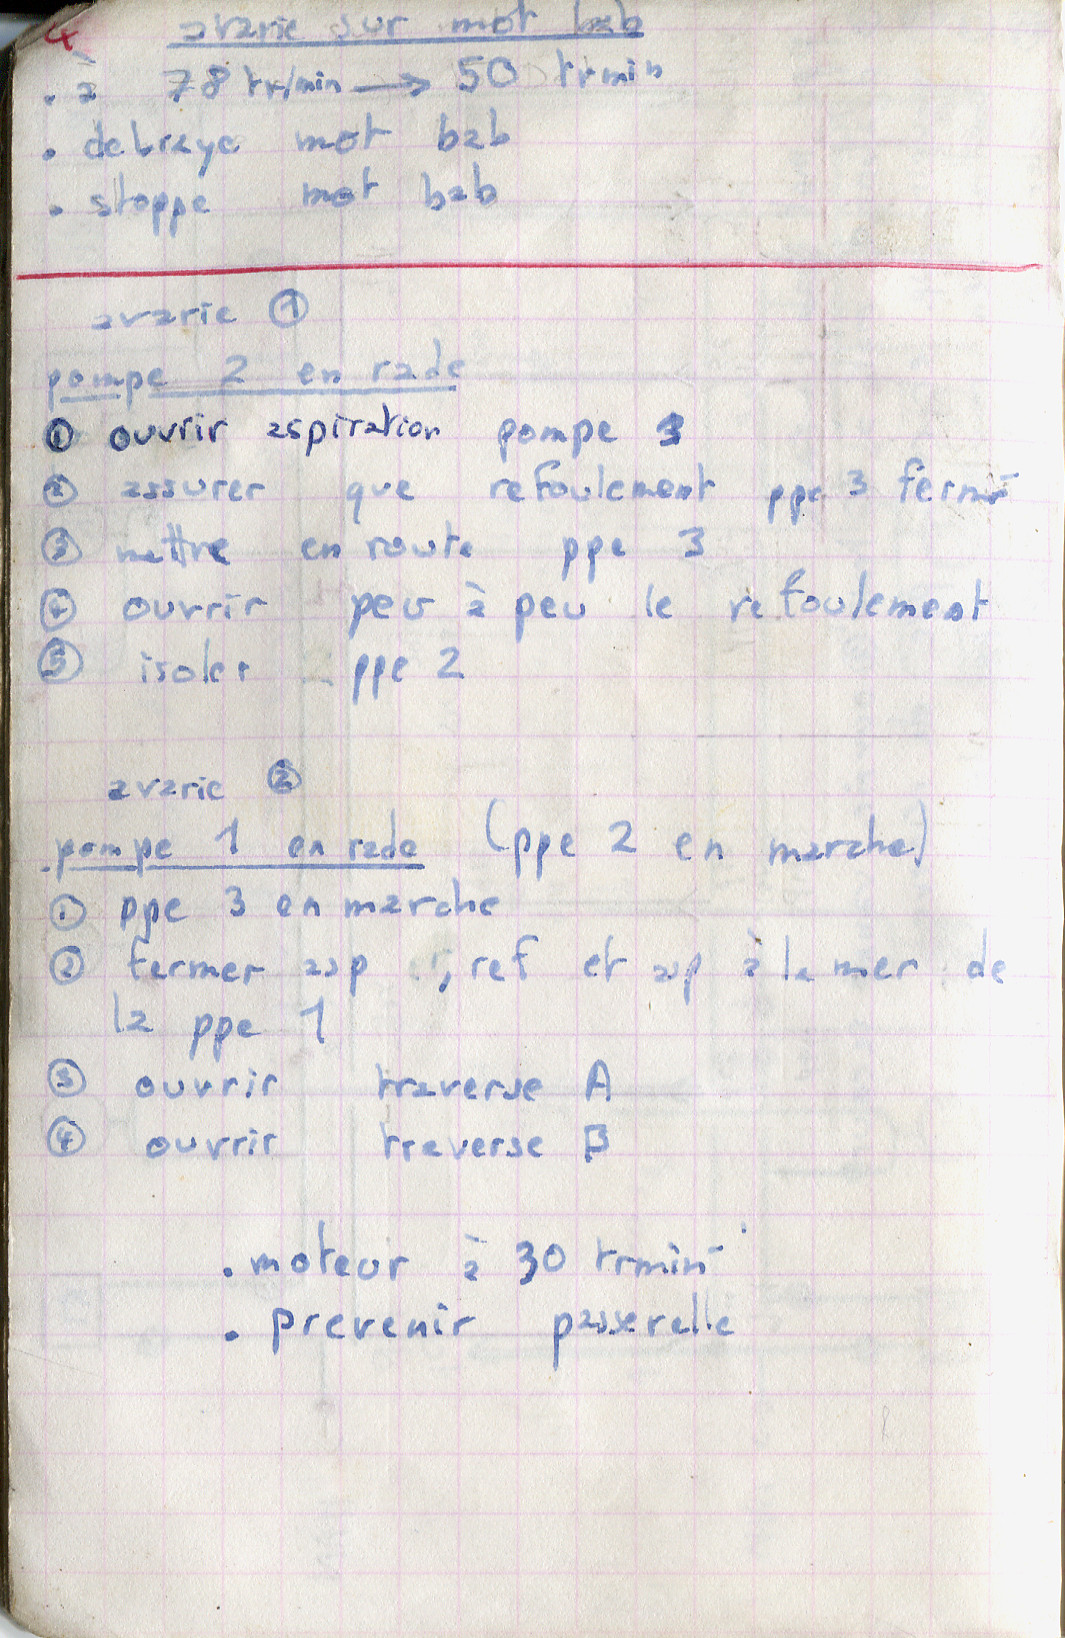 4 avarie sur mot bab
. à 78 tr/min → 50 trmin
. debraye mot bab
. stoppe mot bab
avarie ①
pompe 2 en rade
① ouvrir aspiration pompe 3
② assurer que refoulement ppe 3 fermé
③ mettre en route ppe 3
④ ouvrir peu à peu le refoulement
⑤ isoler ppe 2
avarie ②
.pompe 1 en rade (ppe 2 en marche)
① ppe 3 en marche
② fermer asp , ref et asp à la mer de
la ppe 1
③ ouvrir traverse A
④ ouvrir traverse B
. moteur à 30 trmin
. prevenir passerelle